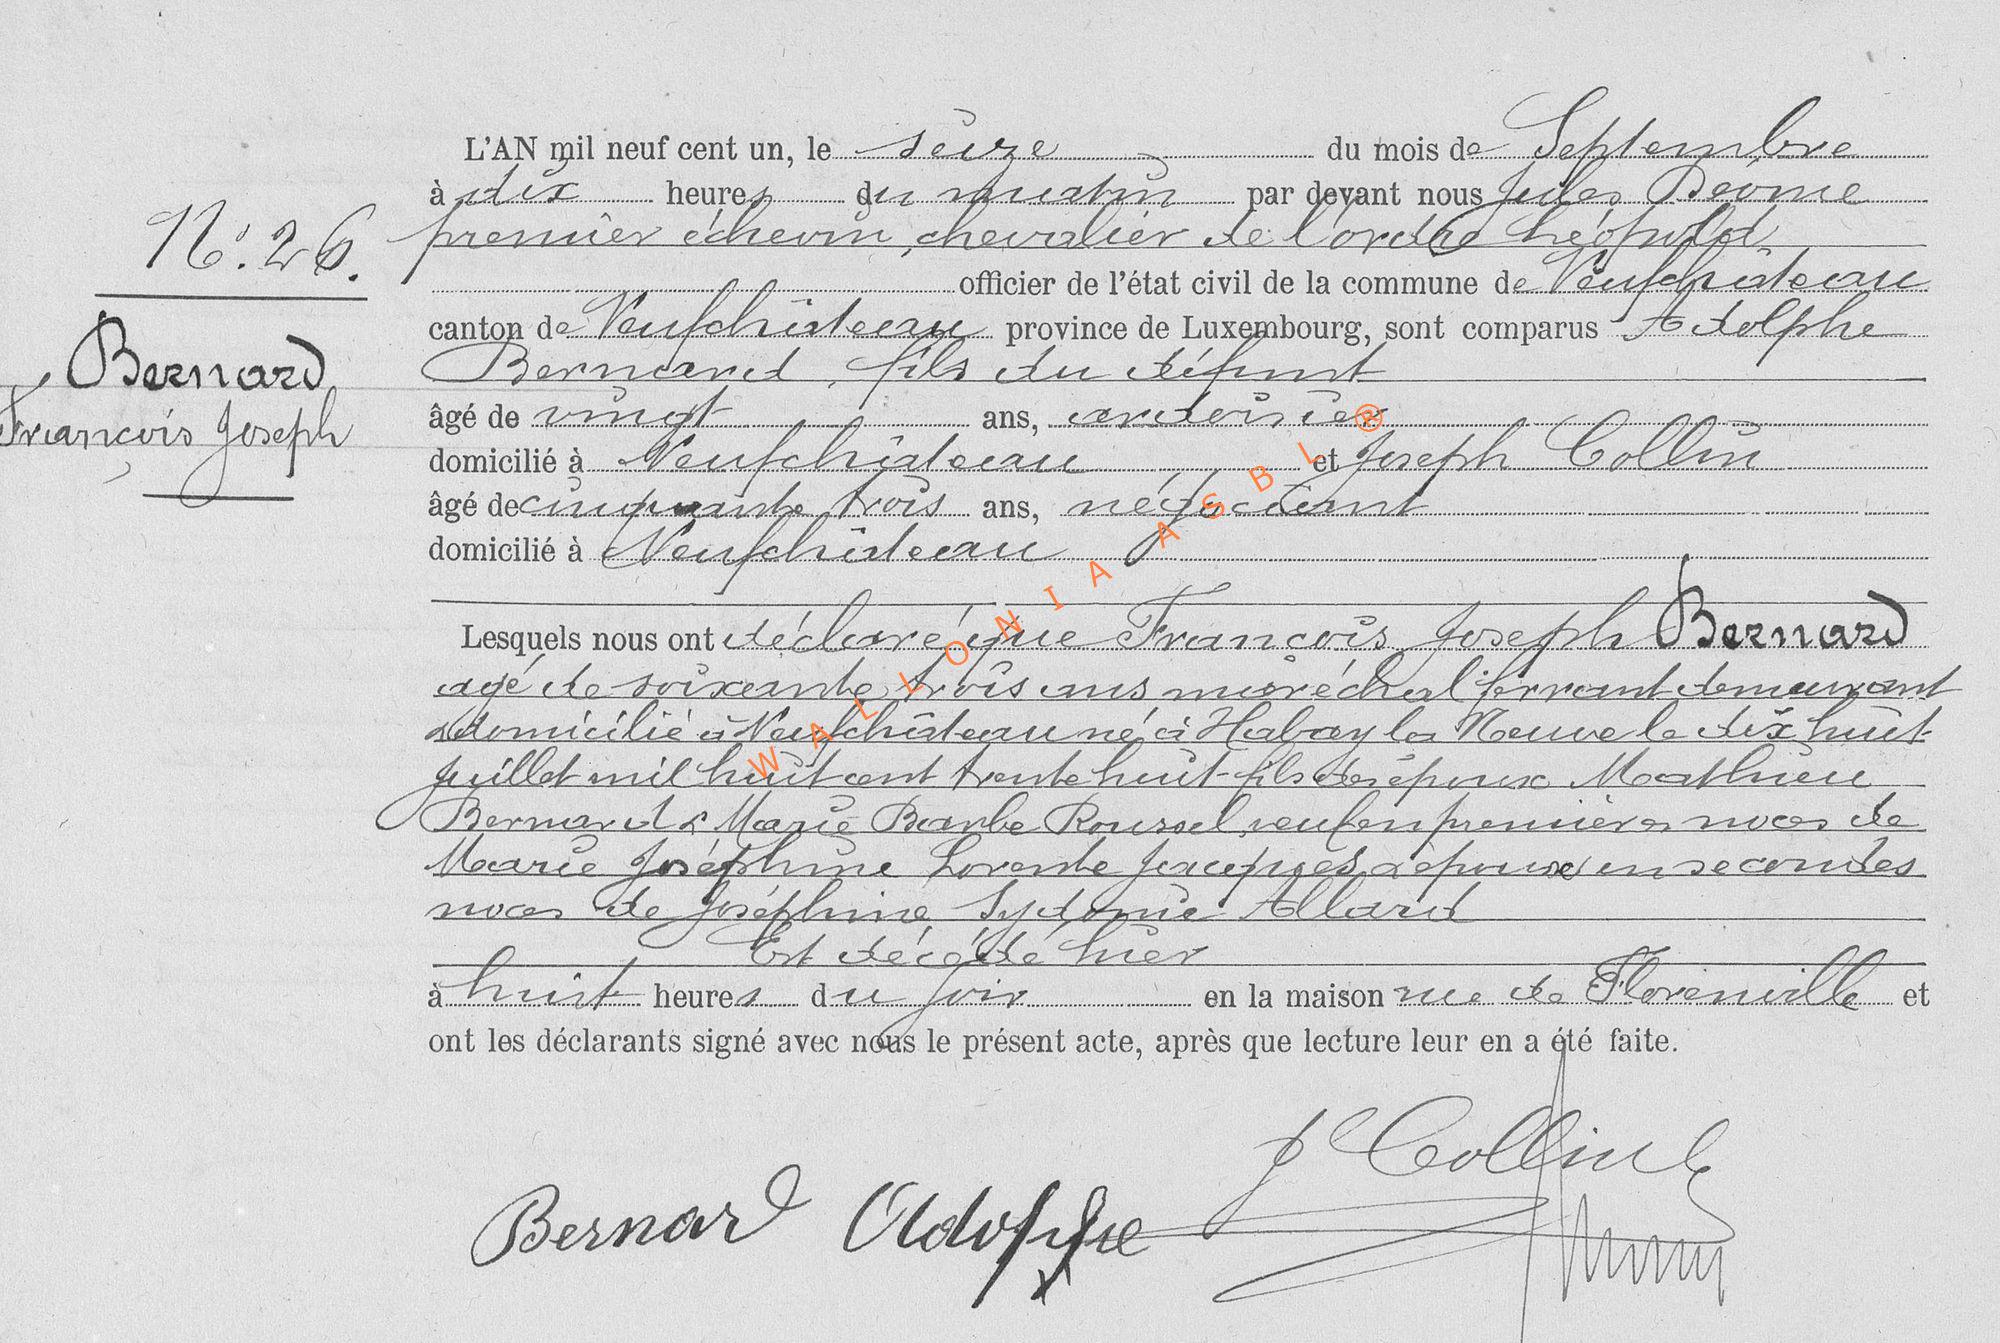 L'AN mil neuf cent un, le seize du mois de Septembre
à dix heures du matin par devant nous Jules
N°. 26.
premier échevin, chevalier de l'ordre Léopold
officier de l'état civil de la commune de Neufchâteau
canton de Neufchâteau province de Luxembourg, sont comparus Adolphe
Bernard
Bernard, fils du défunt
François Joseph
âgé de vingt ans, ardoisier
domicilié à Neufchâteau et Joseph Collin
âgé de cinquante trois ans, négociant
domicilié à Neufchâteau
Lesquels nous ont déclaré que François Joseph Bernard
agé de soixante trois ans maréchal ferrant demeurant
& domicilié à Neufchâteau né à Habay la Neuve le dix huit
juillet mil huit cent trente huit fils des époux Mathieu
Bernard & Marie Barbe Roussel, veuf en premières noces de
Marie Joséphine Lorente Jacques & époux en secondes
noces de Joséphine Sydonie Allard
Est décédé hier
à huit heures du soir en la maison rue de Florenville et
ont les déclarants signé avec nous le présent acte, après que lecture leur en a été faite.
J Collin
Bernard Adolphe
WALLONIA ASBL ®